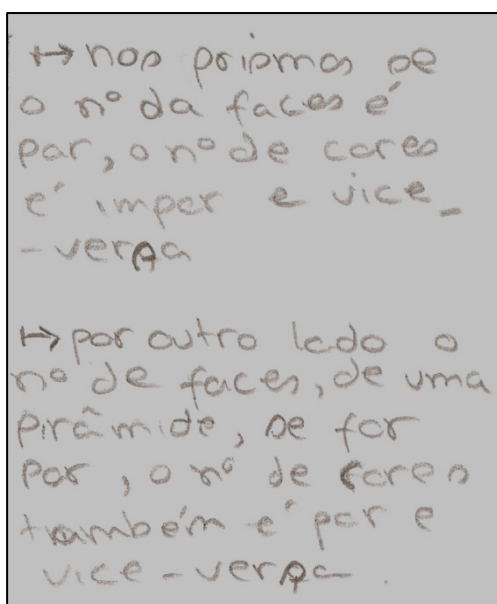 ↦ nos prismas se
o nº da faces é
par, o nº de cores
é impar e vice_
- versa
↦ por outro lado o
nº de faces, de uma
pirâmide, se for
par, o nº de cores
também é par e
vice-versa.